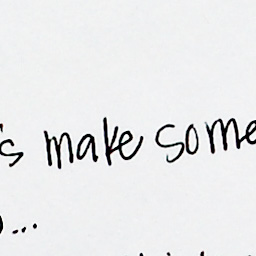 's make some
...